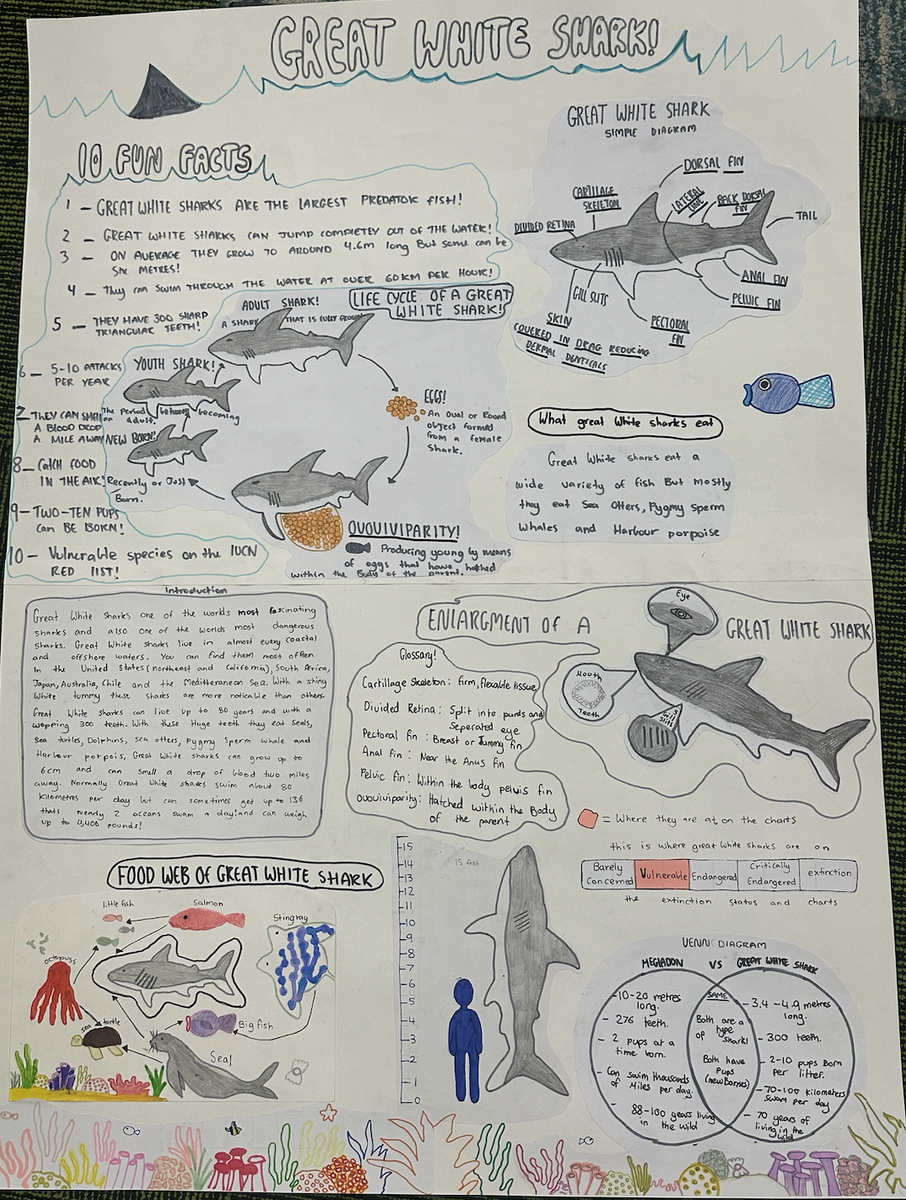 GREAT WHITE SHARK!
10 FUN FACTS
1 — GREAT WHITE SHARKS ARE THE LARGEST PREDATOR FISH!
2 — GREAT WHITE SHARKS CAN JUMP COMPLETELY OUT OF THE WATER!
3 — ON AVERAGE THEY GROW TO AROUND 4.6m long But some can be
SIX METRES!
4 — They can SWIM THROUGH THE WATER AT OVER 60KM PER HOUR!
5 — THEY HAVE 300 SHARP
TRIANGULAR TEETH!
6 — 5-10 ATTACKS
PER YEAR
7 — THEY CAN SMELL
A BLOOD DROP
A MILE AWAY
8 — CATCH FOOD
IN THE AIR!
9 — TWO-TEN PUPS
can BE BORN!
10 — Vulnerable species on the IUCN
RED LIST!
GREAT WHITE SHARK
SIMPLE DIAGRAM
DORSAL FIN
CARTILAGE
SKELETON
LATERAL
LINE
BACK DORSAL
FIN
DIVIDED RETINA
TAIL
ANAL FIN
PELVIC FIN
GILL SLITS
PECTORAL
FIN
SKIN
COVERED IN DRAG REDUCING
DERMAL DENTICALS
LIFE CYCLE OF A GREAT
WHITE SHARK!
ADULT SHARK!
A SHARK THAT IS FULLY GROWN
YOUTH SHARK!
The Period between becoming
an adult.
NEW BORN!
Recently or Just
Born.
EGGS!
An Oval or Round
object formed
from a female
Shark.
OVOUIVIPARITY!
Producing young by means
of eggs that have hatched
within the Body of the parent.
What great White sharks eat
Great White sharks eat a
wide variety of fish But mostly
they eat Sea Otters, Pygmy Sperm
Whales and Harbour porpoise
Introduction
Great White Sharks one of the worlds most fascinating
sharks and also one of the worlds most dangerous
Sharks. Great White sharks live in almost every coastal
and offshore waters. You can find them most often
in the United States (northeast and California), South Africa,
Japan, Australia, Chile and the Mediterranean Sea. With a
White tummy these Sharks are more noticable than others.
Great White sharks can live up to 80 years and with a
wopping 300 teeth. With these Huge teeth they eat Seals,
Sea turtles, Dolphins, Sea otters, Pygmy Sperm whale and
Harbour porpois, Great White sharks can grow up to
6cm and can smell a drop of blood two miles
away. Normally Great White sharks swim about 80
Kilometres per day but can sometimes get up to
thats nearly 2 oceans swam a day! and can weigh
up to pounds!
ENLARGMENT OF A GREAT WHITE SHARK
Eye
Mouth
Teeth
Gill
Slits
Glossary!
Cartillage Skeleton: firm, flexable tissue
Divided Retina: Split into and
Seperated eye
Pectoral fin: Breast or tummy fin
Anal fin: Near the Anus fin
Pelvic fin: Within the body pelvis fin
ovouiviparity: Hatched within the Body
of the parent
= Where they are at on the charts
this is where great White sharks are on
Barely
Concerned
Vulnerable
Endangered
Critically
Endangered
extinction
the extinction status and charts
FOOD WEB OF GREAT WHITE SHARK
little fish
Salmon
Stingray
octopuss
sea turtle
Big fish
Seal
15
14
13
12
11
10
9
8
7
6
5
4
3
2
1
0
15 feet
VENN DIAGRAM
MEGLADON VS GREAT WHITE SHARK
-10-20 metres
long.
- 276 teeth.
- 2 pups at a
time born.
- Can swim thousands
of Miles per day
- 88-100 years living
in the wild
SAME
Both are a
type
of shark!
Both have
Pups
(newBornes)
-3.4-4.9 metres
long.
- 300 teeth.
- 2-10 pups Born
per litter.
-70-100 kilometers
Swam per day
- 70 years of
living in the
wild